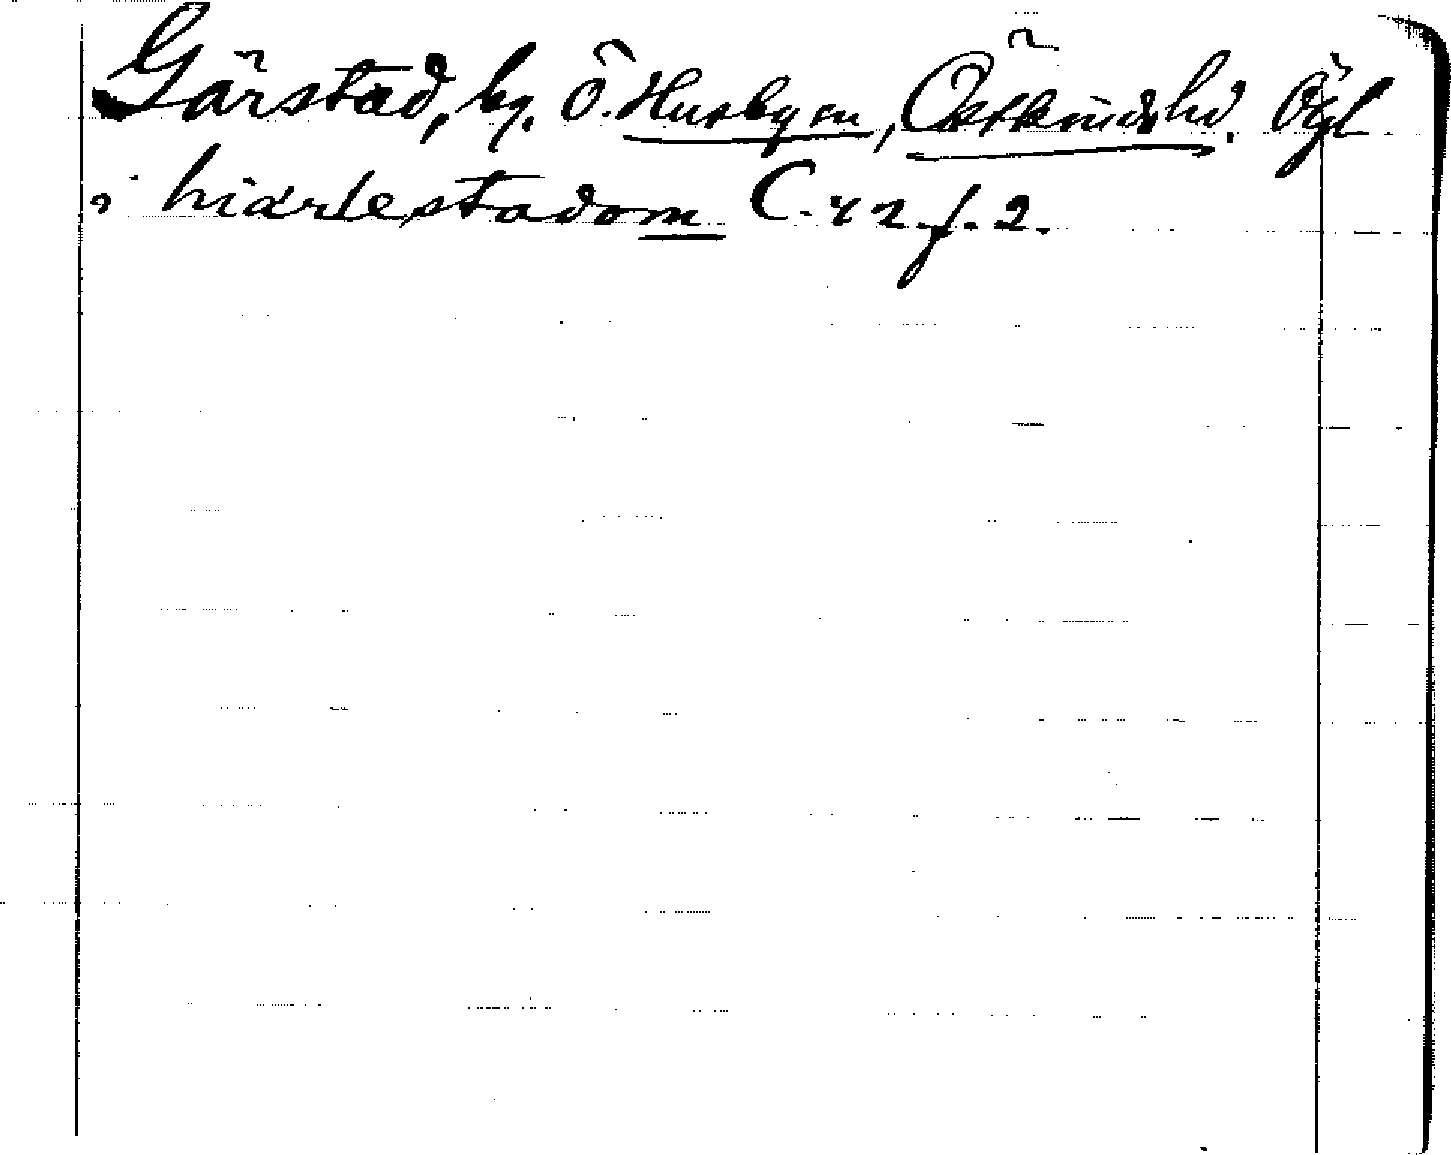 Gärstad, by, Ö. Husby sn, Östkinds hd. Ögl
i hiærlestadom C. 42 f. 2.